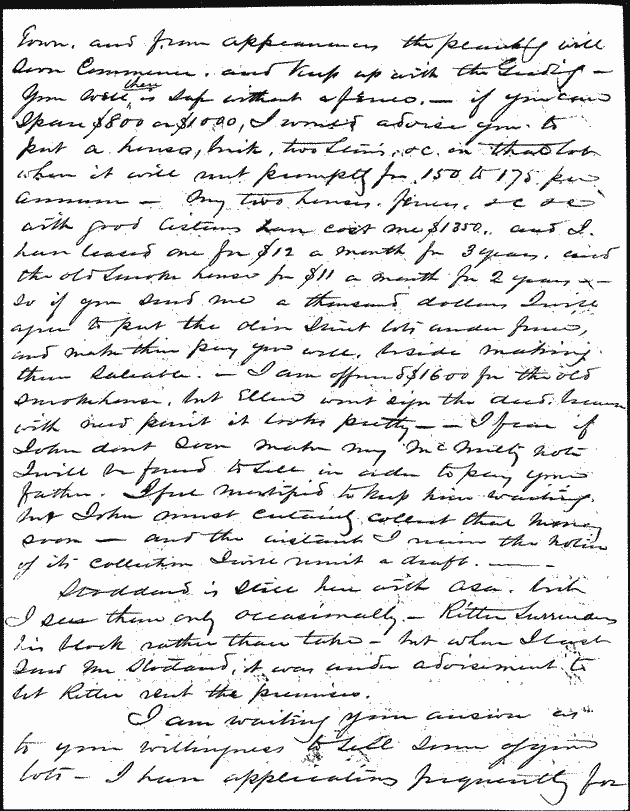 Town, and from appearances the planking will
soon commence, and keep up with the Grading —
Your Well then is safe without a fence. — if you can
Spare $800 or $1000, I would advise you to
put a house, brick, two Stories, &c. on that lot
when it will rent promptly for 150 to 175 per
annum — My two houses, fences, &c &c
with good Cisterns have cost me $1350, and I
have leased one for $12 a month for 3 years, and
the old Smoke house for $11 a month for 2 years —
so if you send me a thousand dollars I will
agree to put the Street lots under fence,
and make them pay you well, beside making
them saleable. — I am offered $1600 for the old
smokehouse, but Ellen wont sign the deed, because
with new paint it looks pretty — I fear if
John dont soon make my note
I will be forced to sell in order to pay your
father. I feel mortified to keep him waiting
but John must certainly collect that money
soon — and the instant I receive the notice
of its collection I will remit a draft. —
Stoddard is still here with Asa, but
I see them only occasionally — Ritter Surrenders
his block rather than take — but when I last
saw Mr Stoddard, it was under advisement to
let Ritter rent the premises.
I am waiting your answer as
to your willingness to sell some of your
lots — I have applications frequently for